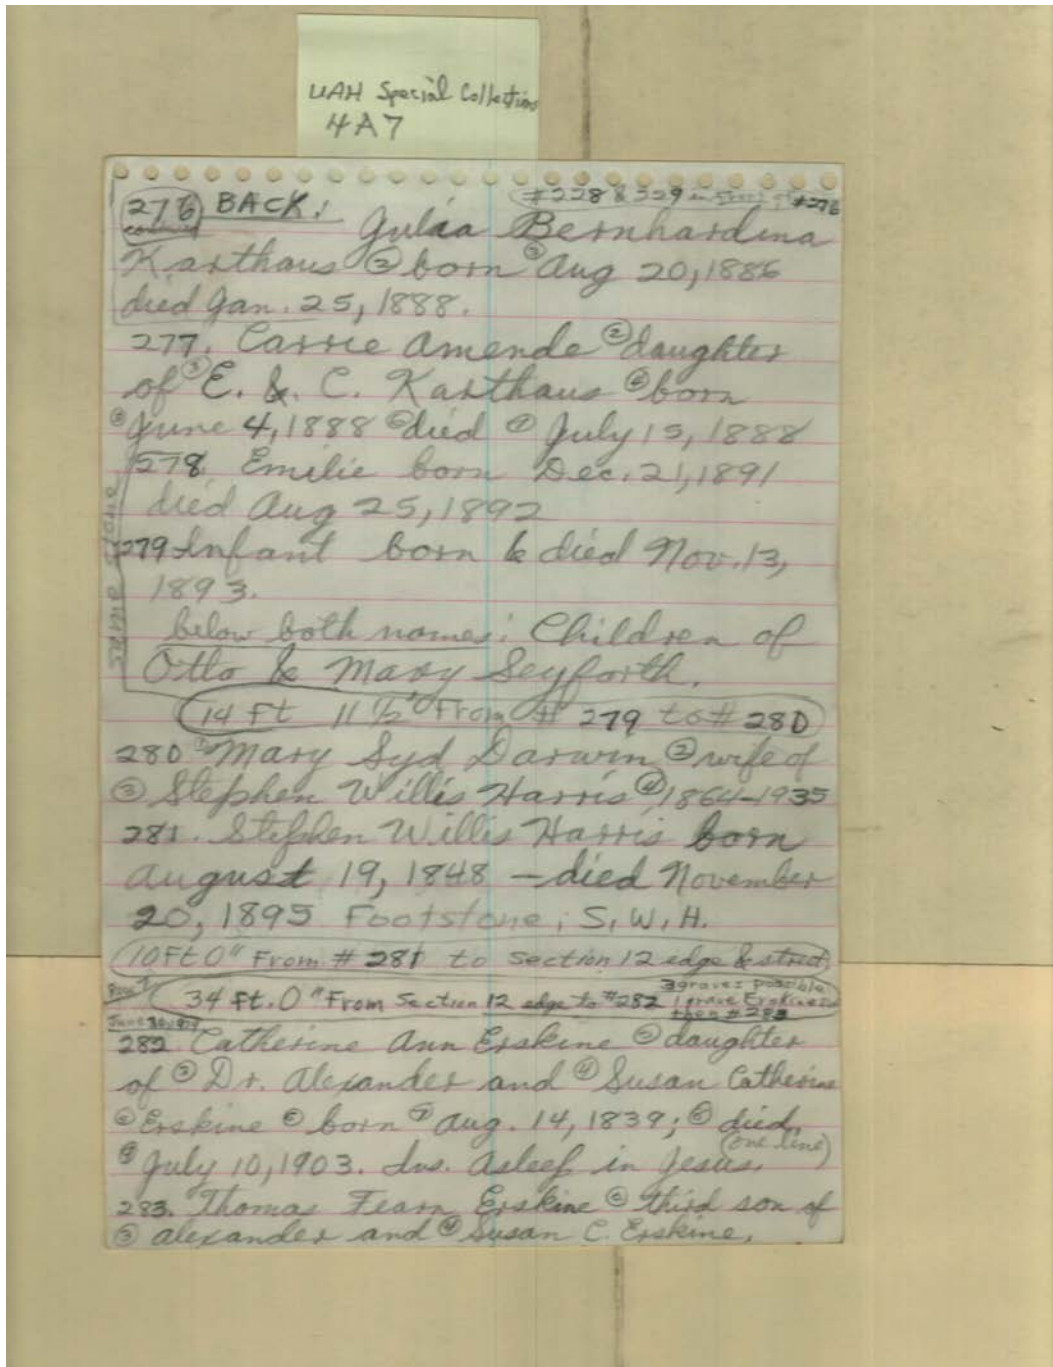 UAH Special Collections
4A7
276 BACK! #228 & 229 in front of #276
continued Julia Bernhardina
Karthaus ② born ③ Aug 20, 1886
died Jan. 25, 1888.
277. Carrie Amende ② daughter
of ③ E. & C. Karthaus ④ born
⑤ June 4, 1888 ⑥ died ⑦ July 15, 1888
278. Emilie born Dec. 21, 1891
died Aug 25, 1892
279 Infant born & died Nov. 13,
1893.
same stone
below both names: Children of
Otto & Mary Seyforth.
14 Ft 11 1/2" From # 279 to # 280
280 ① Mary Syd Darwin ② wife of
③ Stephen Willis Harris ④ 1864-1935
281. Stephen Willis Harris born
August 19, 1848 — died November
20, 1895 Footstone; S.W.H.
10 Ft 0" From # 281 to Section 12 edge & street
34 Ft. 0" From Section 12 edge to #282 3 graves possible
1 grave Erskine
then # 283
June 30, 1979
282. Catherine Ann Erskine ② daughter
of ③ Dr. Alexander and ④ Susan Catherine
⑤ Erskine ⑥ born ⑦ Aug. 14, 1839; ⑧ died
⑨ July 10, 1903. Ins. Asleep in Jesus. (one line)
283. Thomas Fearn Erskine ② third son of
③ Alexander and ④ Susan C. Erskine,